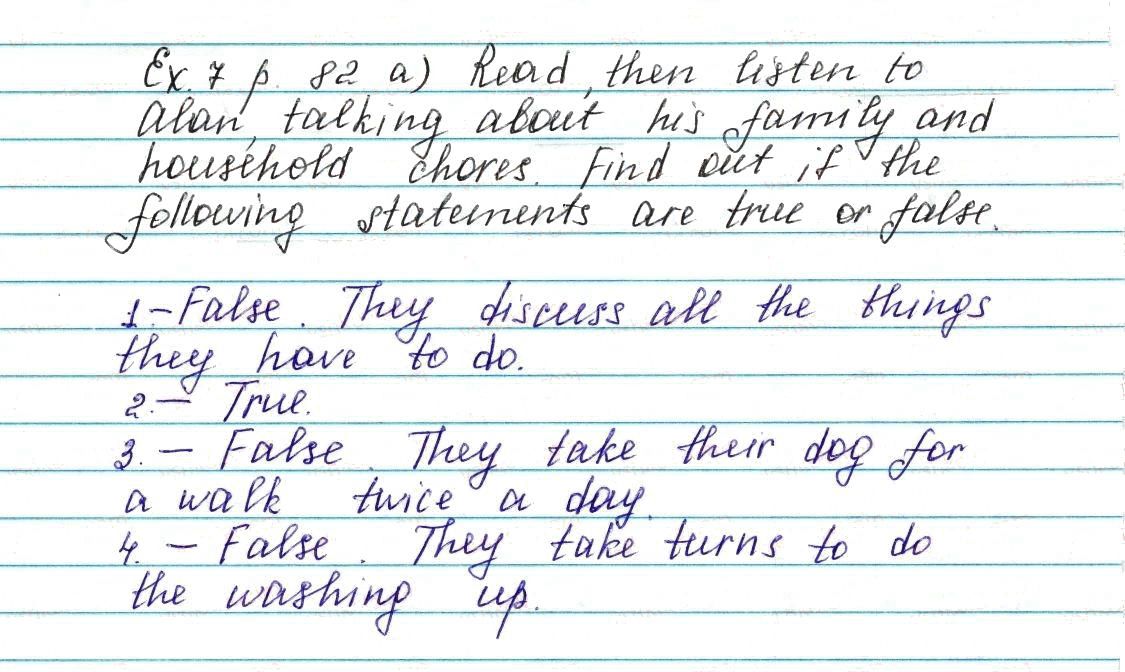 Ex. 7 p. 82 a) Read, then listen to
Alan, talking about his family and
household chores. Find out if the
following statements are true or false.
1 - False. They discuss all the things
they have to do.
2. - True.
3. - False. They take their dog for
a walk twice a day.
4. - False. They take turns to do
the washing up.